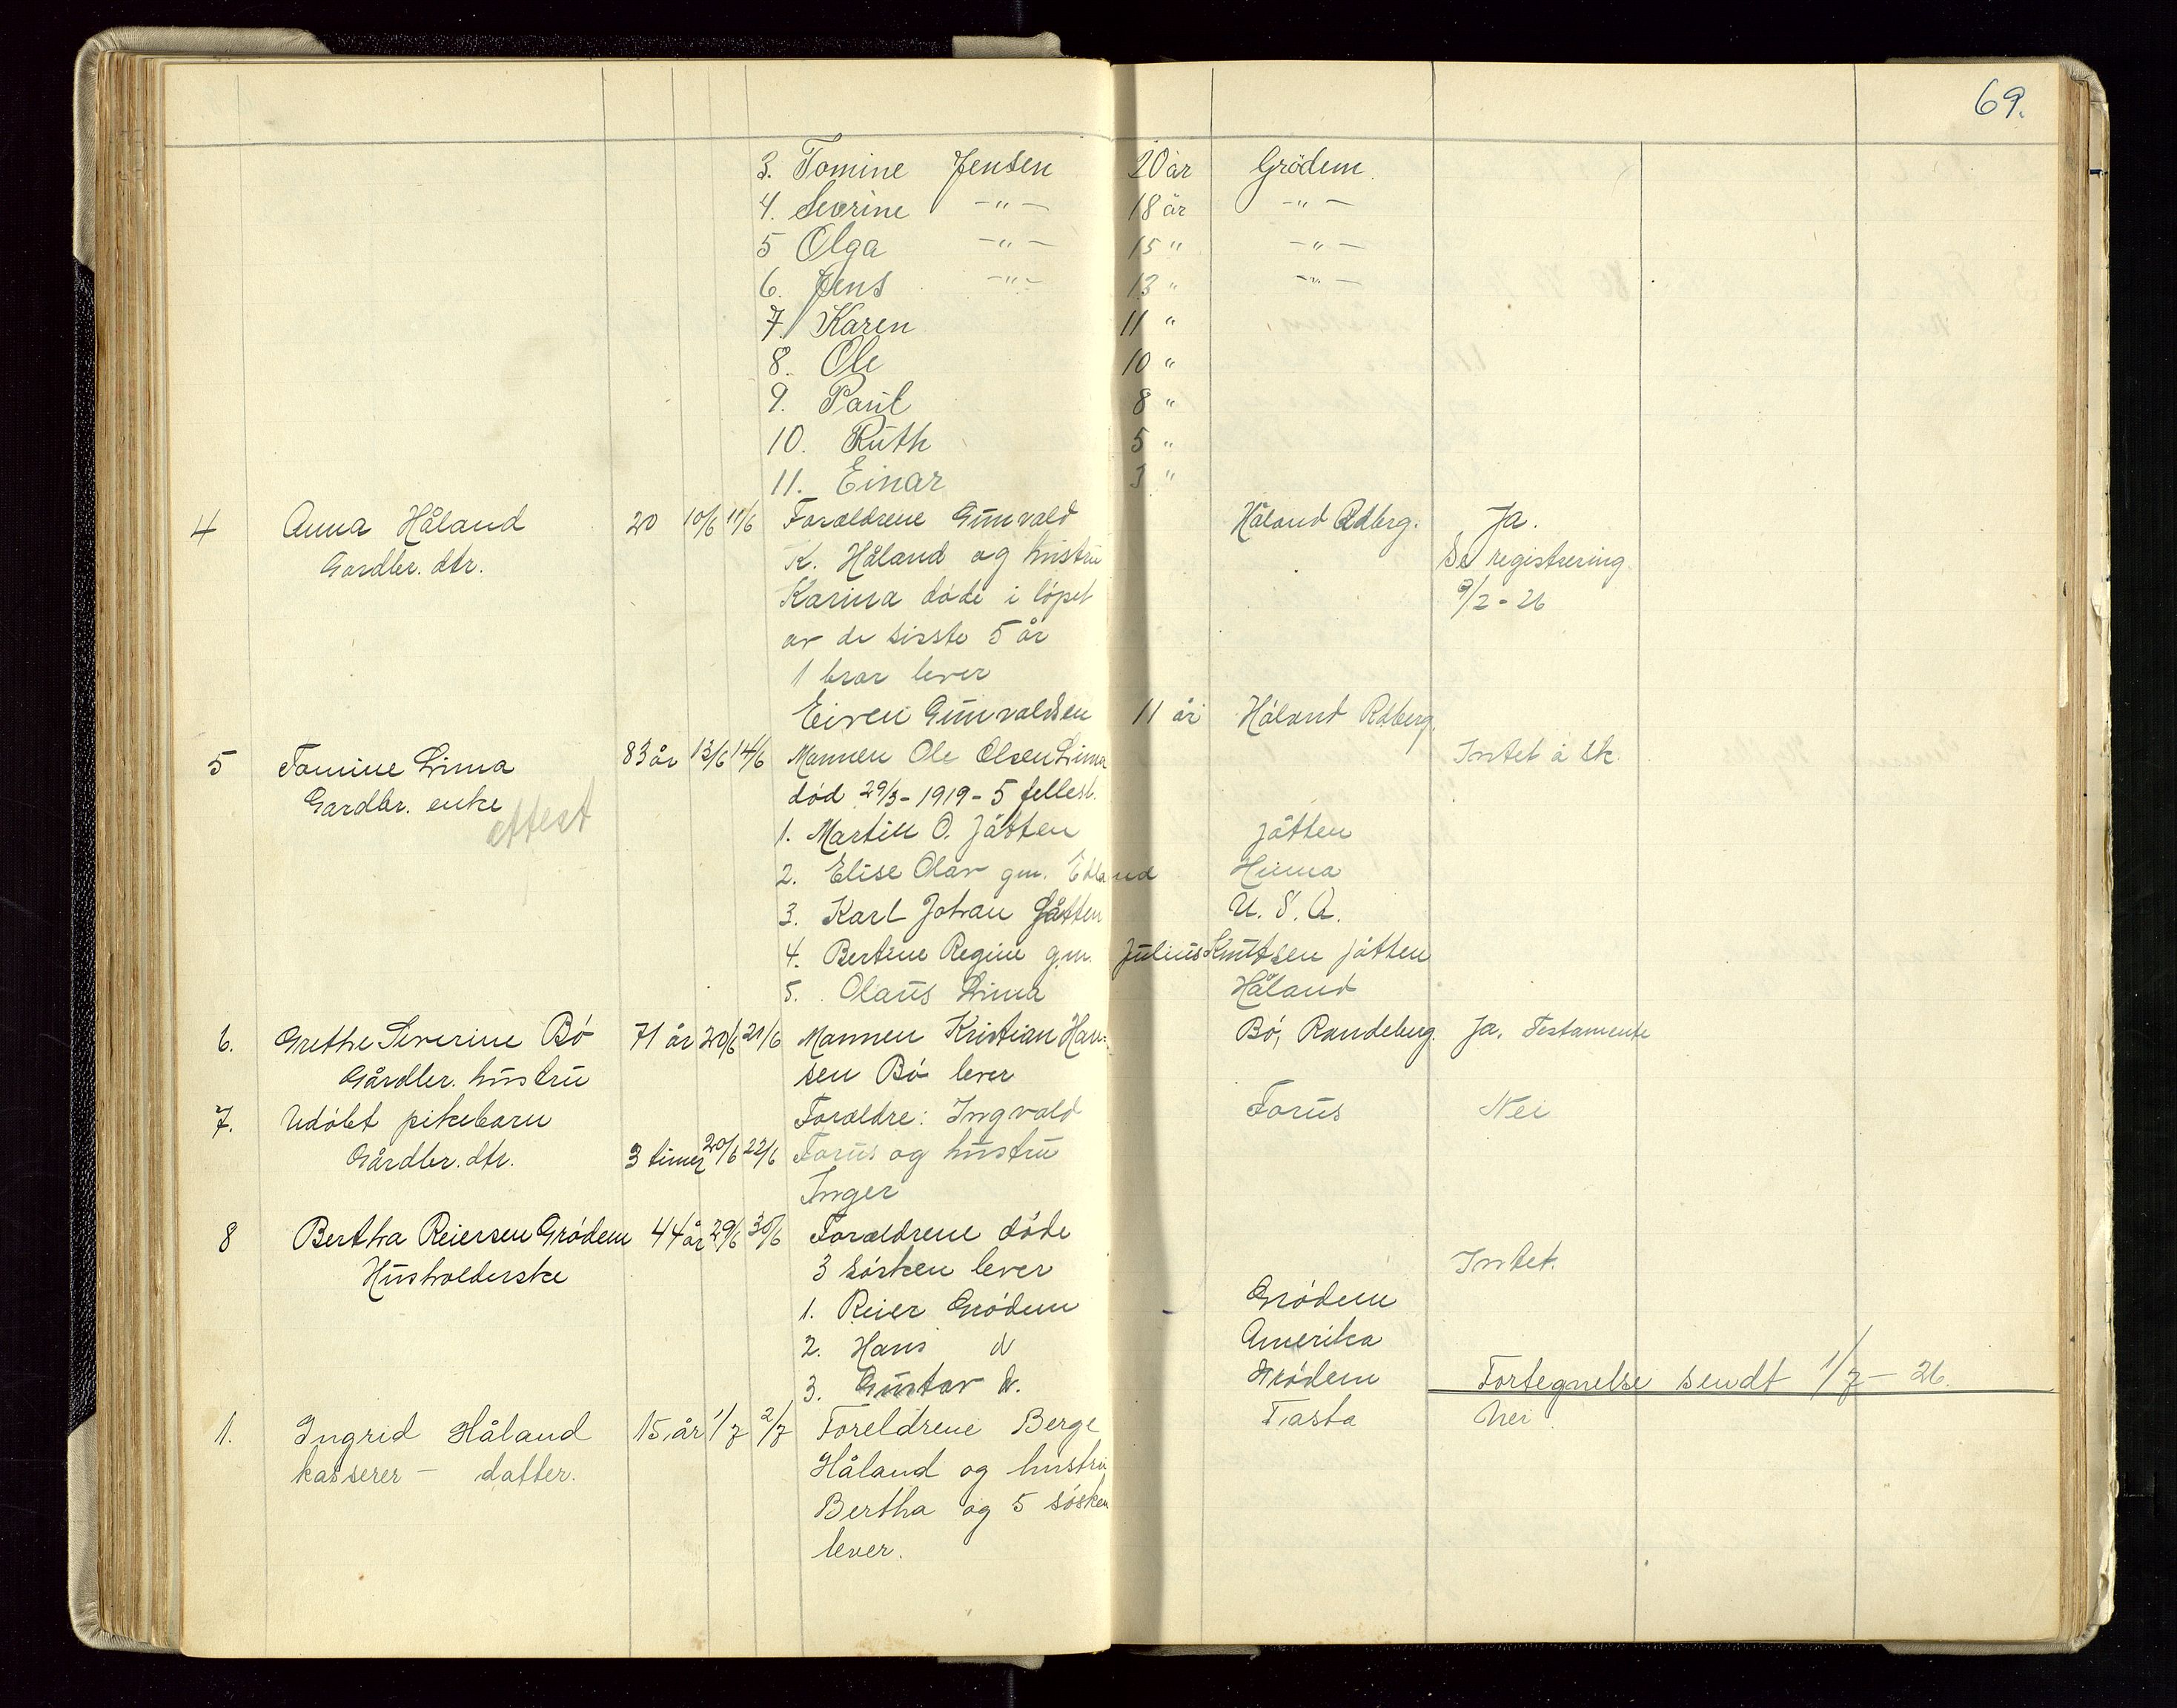 69.
3. Tomine Jensen 20 år Grödem.
4. Severine -"- 18 år -"-
5 Olga -"- 15 " -"-
6. Jens -"- 13 " -"-
7. Karen 11 "
8. Ole 10 "
9. Paul 8 "
10. Ruth 5 "
11. Einar 3 "
4 Anna Håland 20 10/6 11/6 Forældrene Gunvald Håland Rdberg. Ja.
Gardbr. dtr. K. Håland og hustru Se registrering
Karina døde i løpet 9/2-26
av de sisste 5 år
1 bror lever
Eiven Gunvaldsen 11 år Håland Rdberg.
5 Tomine Lima 83 år 13/6 14/6 Mannen Ole Olsen Lima Intet å sk.
Gardbr. enke død 29/3-1919 - 5 fellesb.
attest
1. Martin O. Jåtten Jåtten
2. Elise Olav gm. Edland Hinna
3. Karl Johan Jåtten U. S. A.
4. Bertine Regine gm. Julius Knutsen Jåtten
5. Olaus Lima Håland
6. Grethe Severine Bö 71 år 20/6 21/6 Mannen Kristian Han- Bö, Randeberg. Ja. Testamente
Gårdbr. hustru sen Bö lever
7. Udöbt pikebarn Forældre: Ingvald Forus Nei
Gårdbr. dtr. 3 timer 20/6 22/6 Forus og hustru
Inger
8 Bertha Reiersen Grödem 44 år 29/6 30/6 Forældrene döde
Husholderske 3 sösken lever Intet.
1. Reier Grödem Grödem
2. Hans d Amerika
3. Gustav d. Grödem Fortegnelse sendt 1/7 - 26.
1. Ingrid Håland 15 år 1/7 2/7 Foreldrene Berge Tasta Nei
kasserer - datter. Håland og hustru
Bertha og 5 sösken
lever.